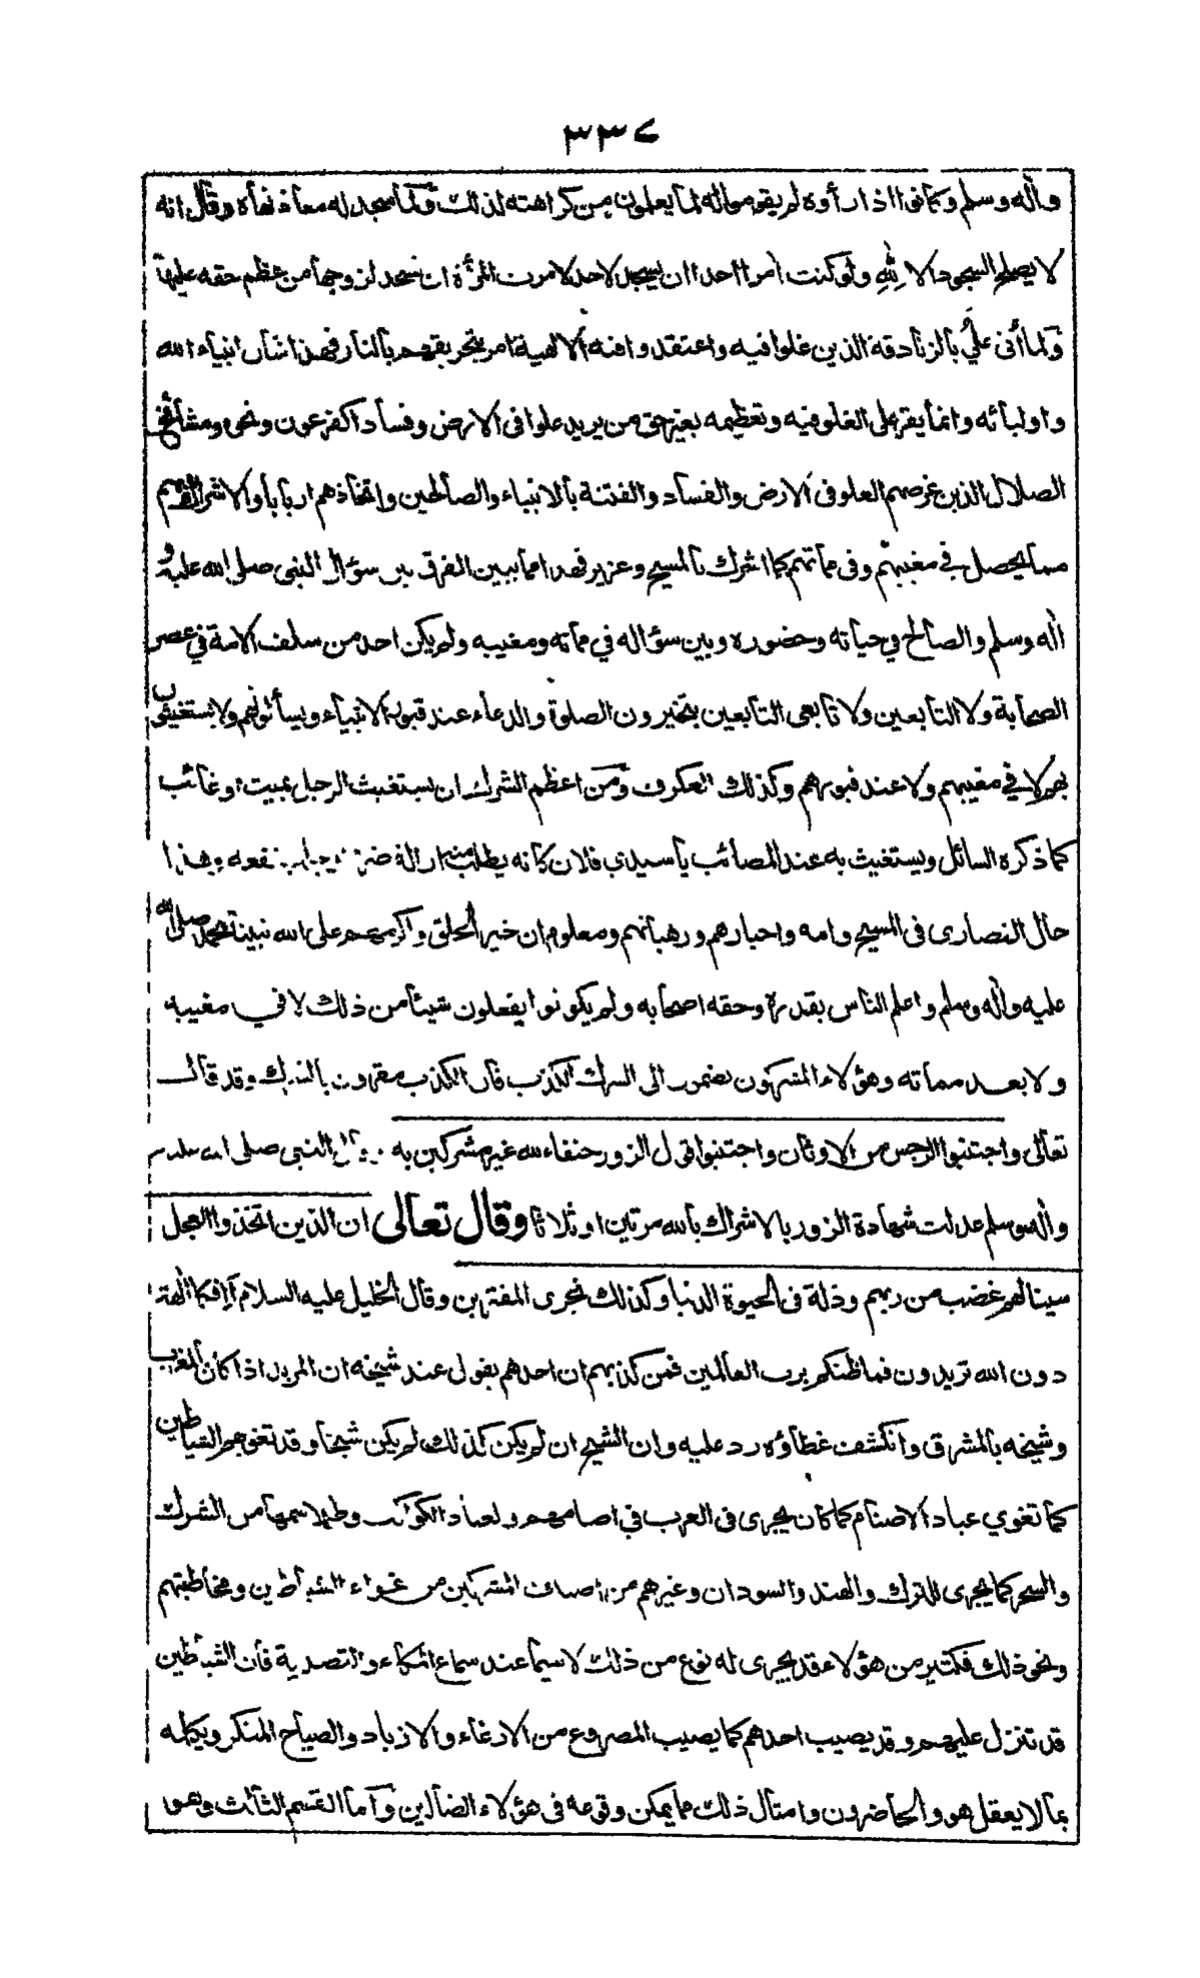 ٣٣٧
واٰله وسلم وكانوا اذا رأوه لم يقوموا له لما يعلمون من كراهته لذلك ولما سجد له معاذ نهاه وقال انه
لا يصلح السجود الا لله ولو كنت امرا احدا ان يسجد لاحد لامرت المرأة ان تسجد لزوجها من عظم حقه عليها
ولما أتى علي بالزنادقة الذين غلوا فيه واعتقدوا فيه الالهية امر بتحريقهم بالنار فهذا شأن انبياء الله
واوليائه وانما يقر على الغلو فيه وتعظيمه بغير حق من يريد علوا في الارض وفسادا كفرعون ونحوه ومشائخ
الضلال الذين غرضهم العلو في الارض والفساد والفتنة بالانبياء والصالحين واتخاذهم اربابا والاشراك بهم
مما يحصل في مغيبهم وفي مماتهم كما اشرك بالمسيح وعزير فهذا مما يبين الفرق بين سؤال النبي صلى الله عليه و
اٰله وسلم والصالح في حياته وحضوره وبين سؤاله في مماته ومغيبه ولم يكن احد من سلف الامة في عصر
الصحابة ولا التابعين ولا تابعى التابعين يتخيرون الصلوة والدعاء عند قبور الانبياء ويسألونهم ولا يستغيثون
بهم لا في مغيبهم ولا عند قبورهم وكذلك العكوف ومن اعظم الشرك ان يستغيث الرجل بميت او غائب
كما ذكره السائل ويستغيث به عند المصائب يا سيدي فلان كانه يطلب منه ازالة ضره نفعه وهذا
حال النصارى في المسيح وامه واحبارهم ورهبانهم ومعلوم ان خير الخلق واكرمهم على الله نبينا محمد صلى الله
عليه واٰله وسلم واعلم الناس بقدره وحقه اصحابه ولم يكونوا يفعلون شيئا من ذلك لا في مغيبه
ولا بعد مماته وهؤلاء المشركون يضمون الى الشرك الكذب فان الكذب مقرون بالشرك وقد قال
تعالى واجتنبوا الرجس من الاوثان واجتنبوا قول الزور حنفاء لله غير مشركين به النبي صلى الله عليه
واٰله وسلم عدلت شهادة الزور بالاشراك بالله مرتين او ثلاثا وقال تعالى ان الذين اتخذوا العجل
سينالهم غضب من ربهم وذلة في الحيوة الدنيا وكذلك نجرى المفترين وقال الخليل عليه السلام أإفكا اٰلهة
دون الله تريدون فما ظنكم برب العالمين فمن كذبهم ان احدهم يقول عند شيخه ان المريد اذا كان بالمغرب
وشيخه بالمشرق وانكشف غطاؤه رد عليه وان الشيخ ان لم يكن كذلك لم يكن شيخا وقد تغويهم الشياطين
كما تغوي عباد الاصنام كما كان يجرى في العرب في اصنامهم ولعباد الكواكب وطلاسمها من الشرك
والسحر كما يجرى للترك والهند والسودان وغيرهم من اصناف المشركين من غواء الشياطين ومخاطبتهم
ونحو ذلك فكثير من هؤلاء قد يجرى له نوع من ذلك لا سيما عند سماع المكاء والتصدية فان الشياطين
قد تنزل عليهم وقد يصيب احدهم كما يصيب المصروع من الارغاء والازباد والصياح المنكر ويكلمه
بما لا يعقل هو والحاضرون وامثال ذلك مما يمكن وقوعه في هؤلاء الضالين واما القسم الثالث وهو